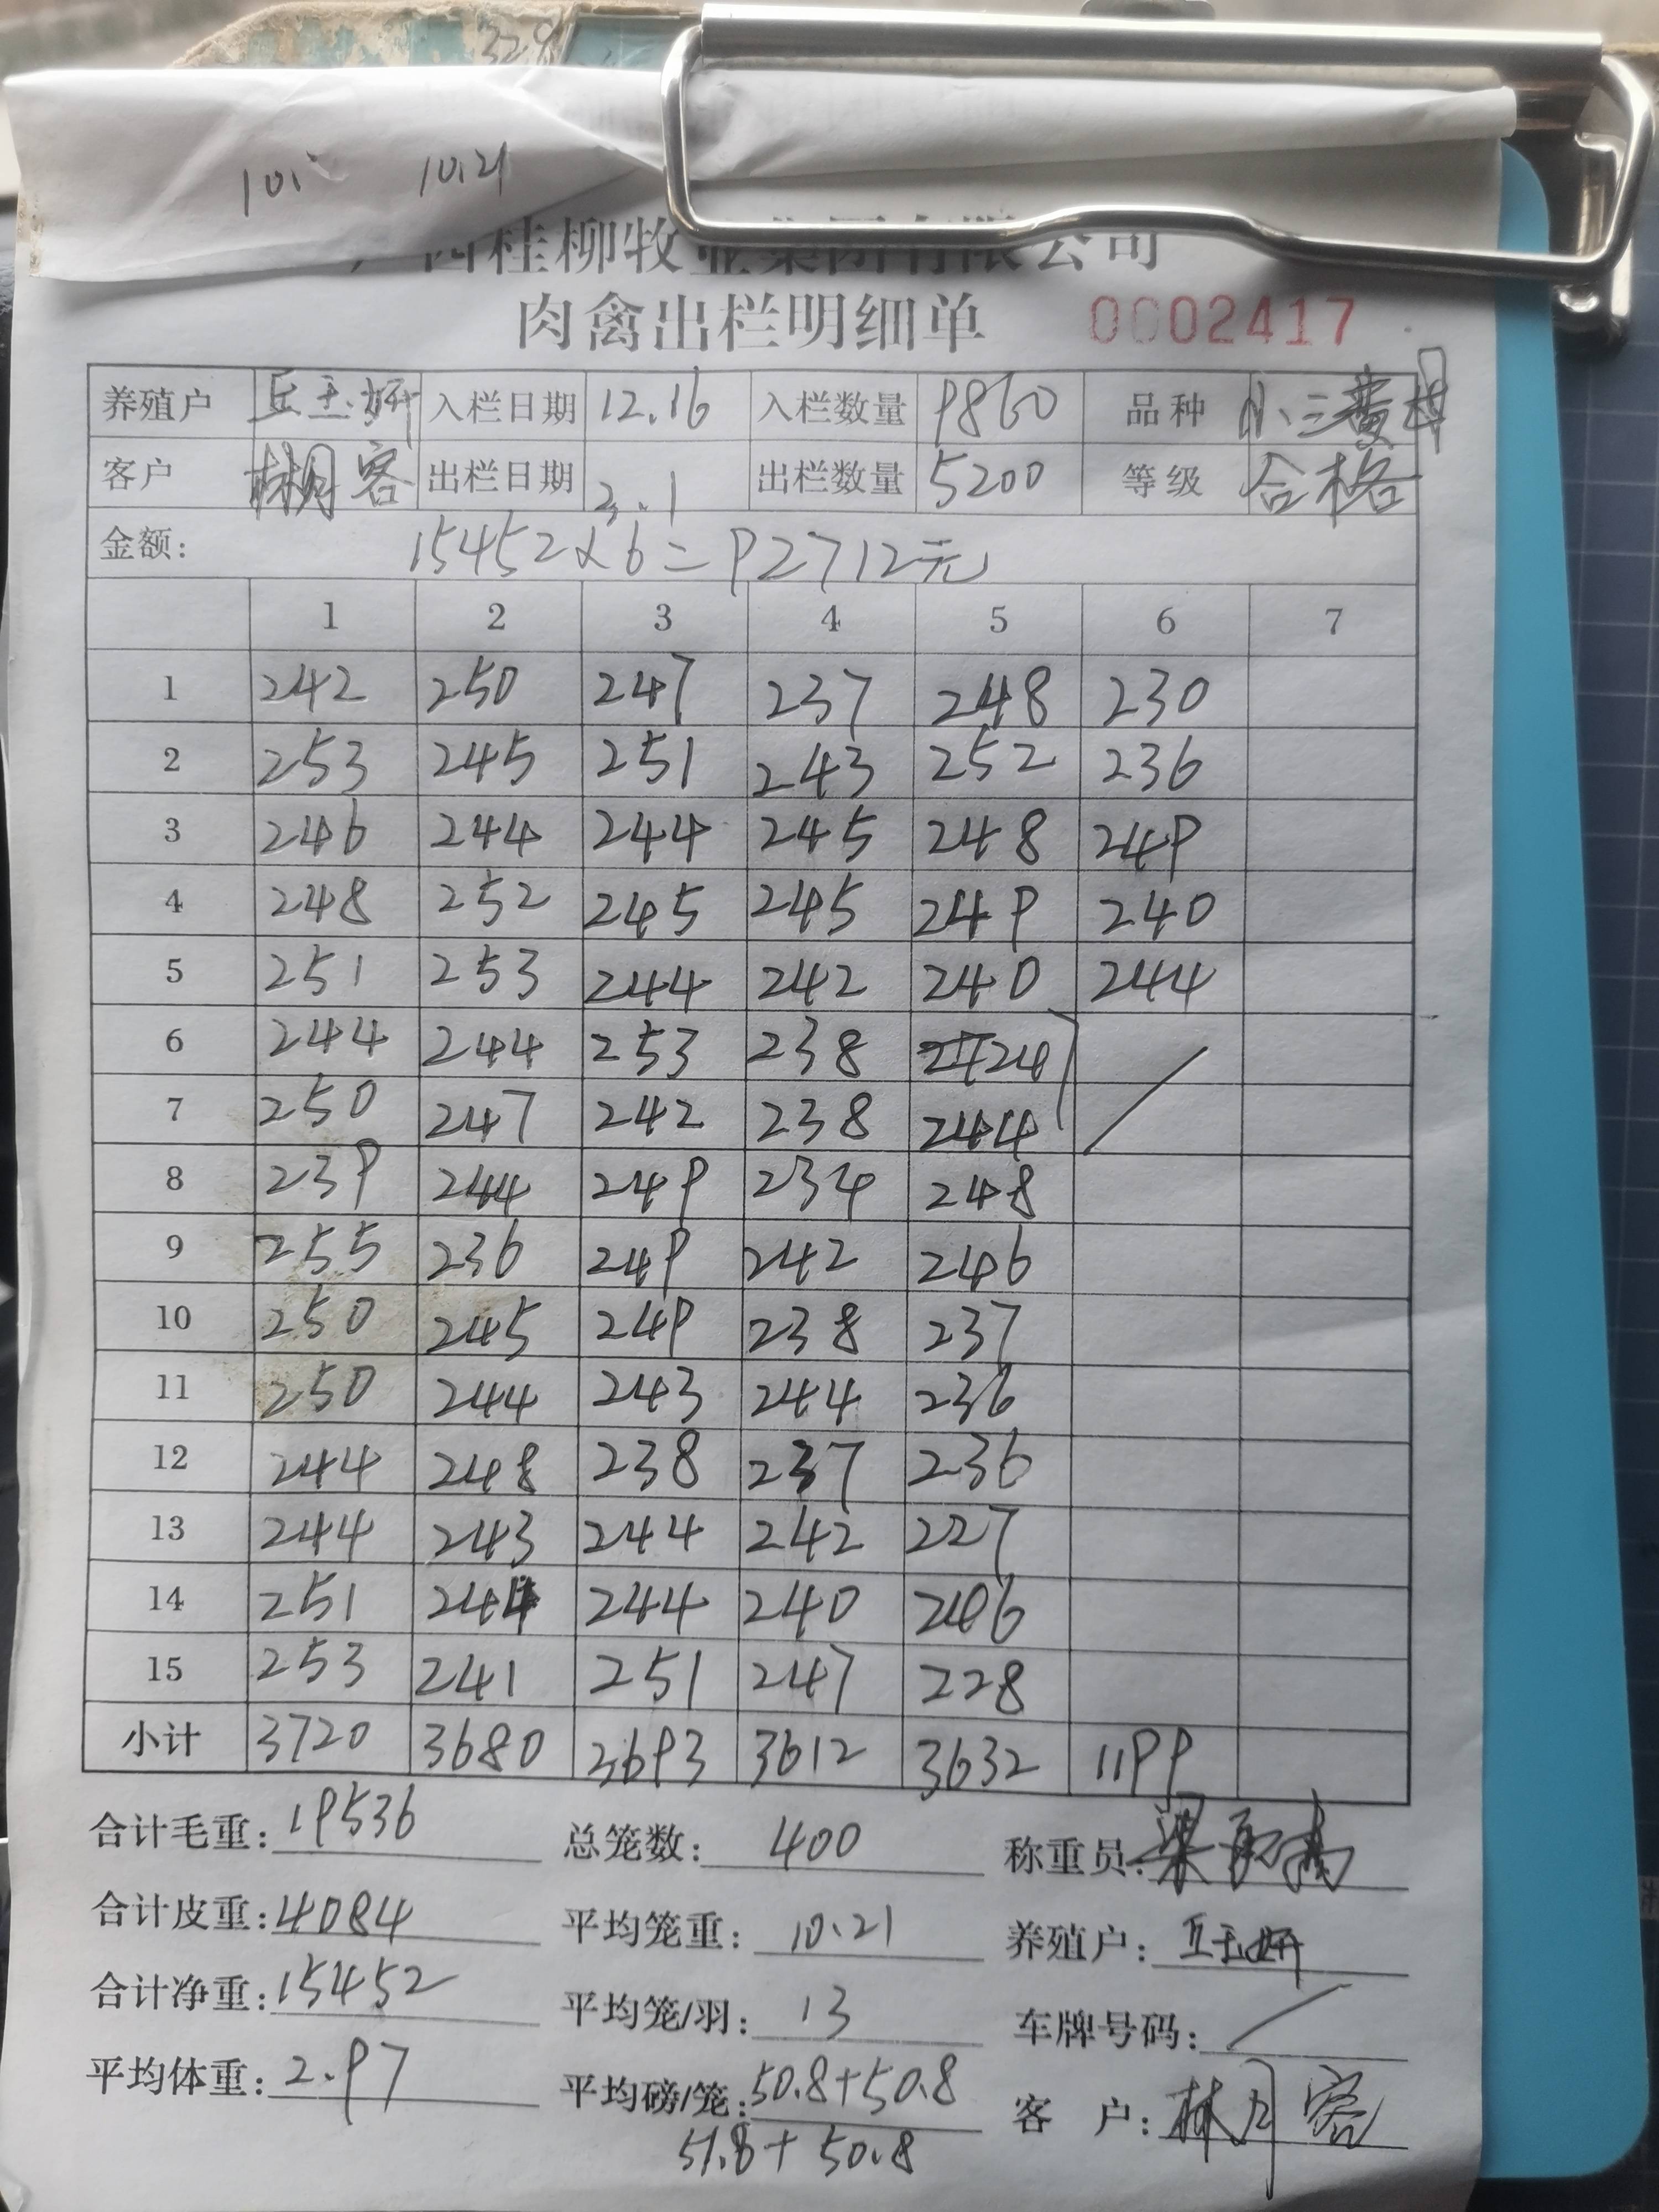 10.21
西桂柳牧业集团有限公司
肉禽出栏明细单 0002417
养殖户 丘玉妍 入栏日期 12.16 入栏数量 9860 品种 小三黄母
客户 林月客 出栏日期 3.1 出栏数量 5200 等级 合格
金额: 15452×6=92712元
1 2 3 4 5 6 7
1 242 250 247 237 248 230
2 253 245 251 243 252 236
3 246 244 244 245 248 249
4 248 252 245 245 249 240
5 251 253 244 242 240 244
6 244 244 253 238
7 250 247 242 238 244
8 239 244 249 234 248
9 255 236 249 242 246
10 250 245 249 238 237
11 250 244 243 244 236
12 244 248 238 237 236
13 244 243 244 242 227
14 251 244 244 240 246
15 253 241 251 247 228
小计 3720 3680 3693 3612 3632 1199
合计毛重: 19536 总笼数: 400 称重员:
合计皮重: 4084 平均笼重: 10.21 养殖户: 丘玉妍
合计净重: 15452 平均笼/羽: 13 车牌号码: /
平均体重: 2.97 平均磅/笼: 50.8+50.8 客 户: 林月客
51.8+50.8